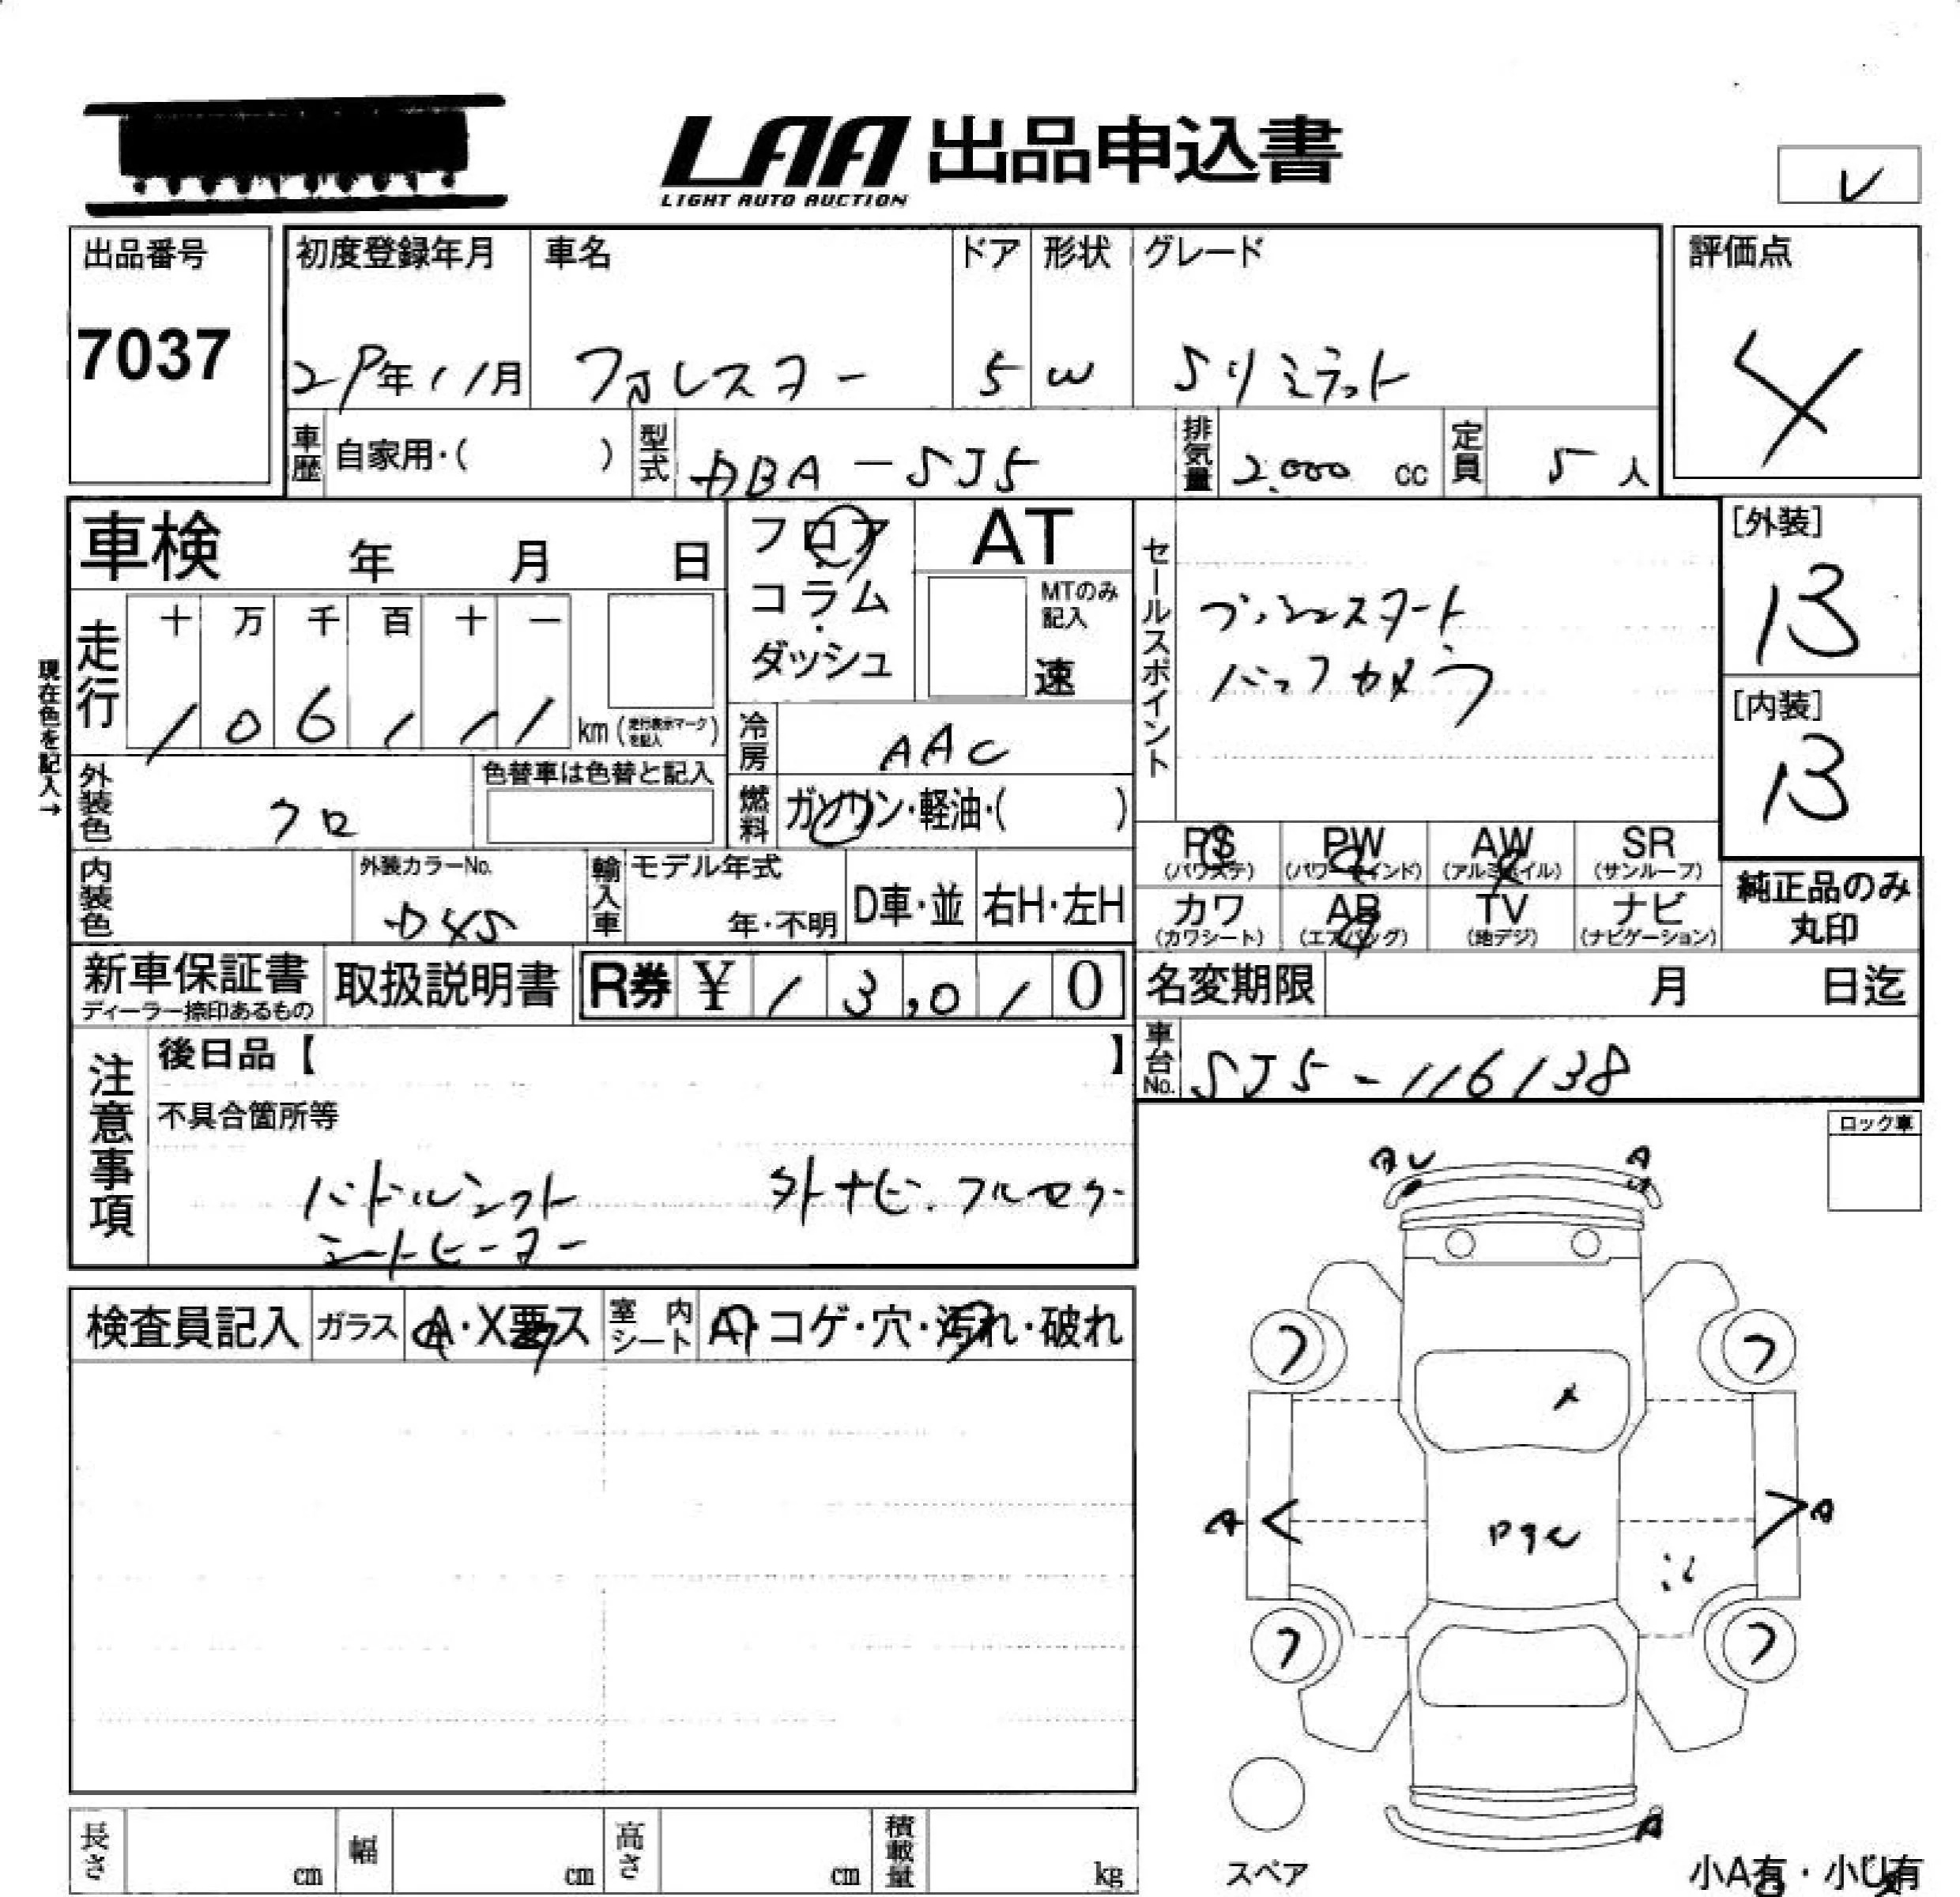 LAA 出品申込書
LIGHT AUTO AUCTION
レ
出品番号
7037
初度登録年月 車名 ドア 形状 グレード
29年11月 フォレスター 5 W Sリミテット
評価点
4
車歴 自家用・( ) 型式 DBA-SJ5 排気量 2.000 cc 定員 5人
車検 年 月 日
フロア・コラム・ダッシュ
AT
MTのみ記入
速
セールスポイント
プッシュスタート
バックカメラ
[外装]
B
[内装]
B
現在色を記入→
走行 十 万 千 百 十 一
1 0 6 1 1 1 km (走行表示マークを記入)
冷房 AAC
外装色 クロ 色替車は色替と記入
燃料 ガソリン・軽油・( )
内装色 外装カラーNo. D4S
輸入車 モデル年式 年・不明 D車・並 右H・左H
PS (パワステ) PW (パワーウインド) AW (アルミホイル) SR (サンルーフ)
カワ (カワシート) AB (エアバッグ) TV (地デジ) ナビ (ナビゲーション)
純正品のみ丸印
新車保証書 ディーラー捺印あるもの 取扱説明書 R券 ¥ 1 3,0 1 0
名変期限 月 日迄
車台No. SJ5-116138
注意事項
後日品【 】
不具合箇所等
パドルシフト 外ナビ.フルセグ
シートヒーター
ロック車
検査員記入 ガラス A・X要ス 室内シート A・コゲ・穴・汚れ・破れ
A U A
フ フ
A A
フ フ
A
スペア
小A有・小U有
長さ cm 幅 cm 高さ cm 積載量 kg